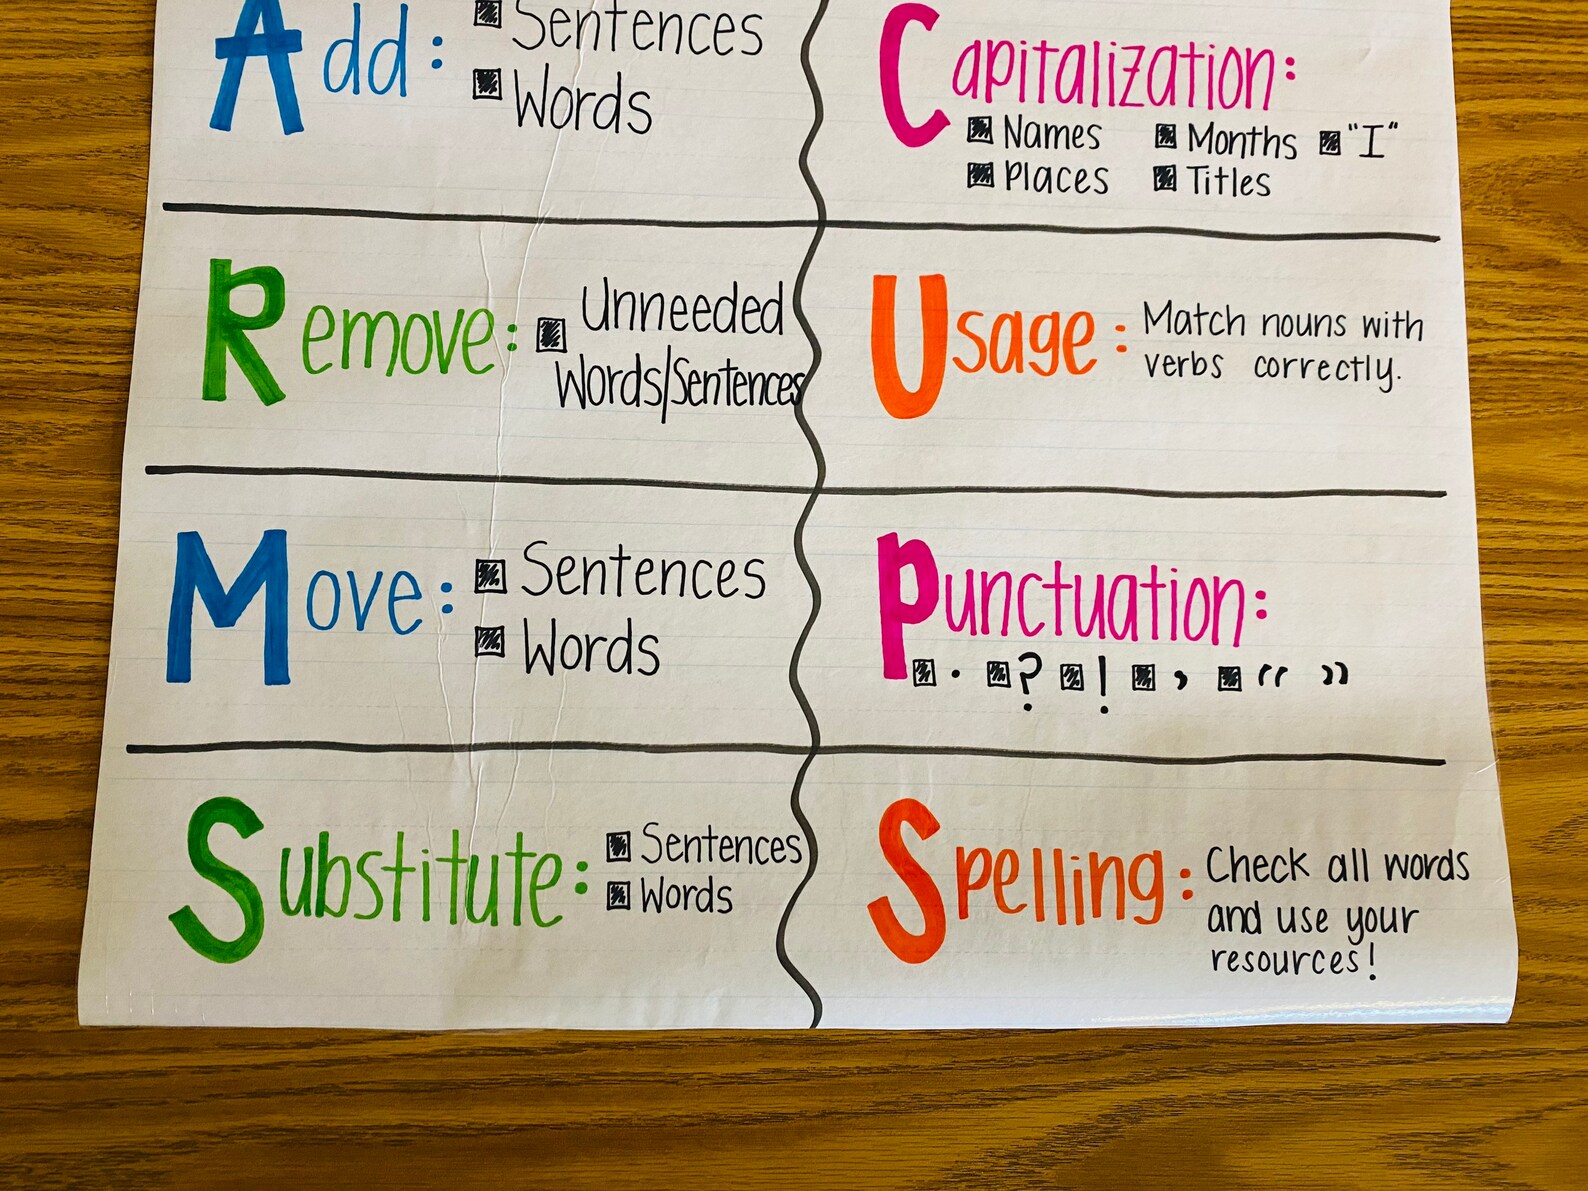 Add:
Sentences
Words
Remove:
Unneeded
Words/Sentences
Move:
Sentences
Words
Substitute:
Sentences
Words
Capitalization:
Names Months "I"
Places Titles
Usage: Match nouns with
verbs correctly.
Punctuation:
. ? ! , “ ”
Spelling: Check all words
and use your
resources!